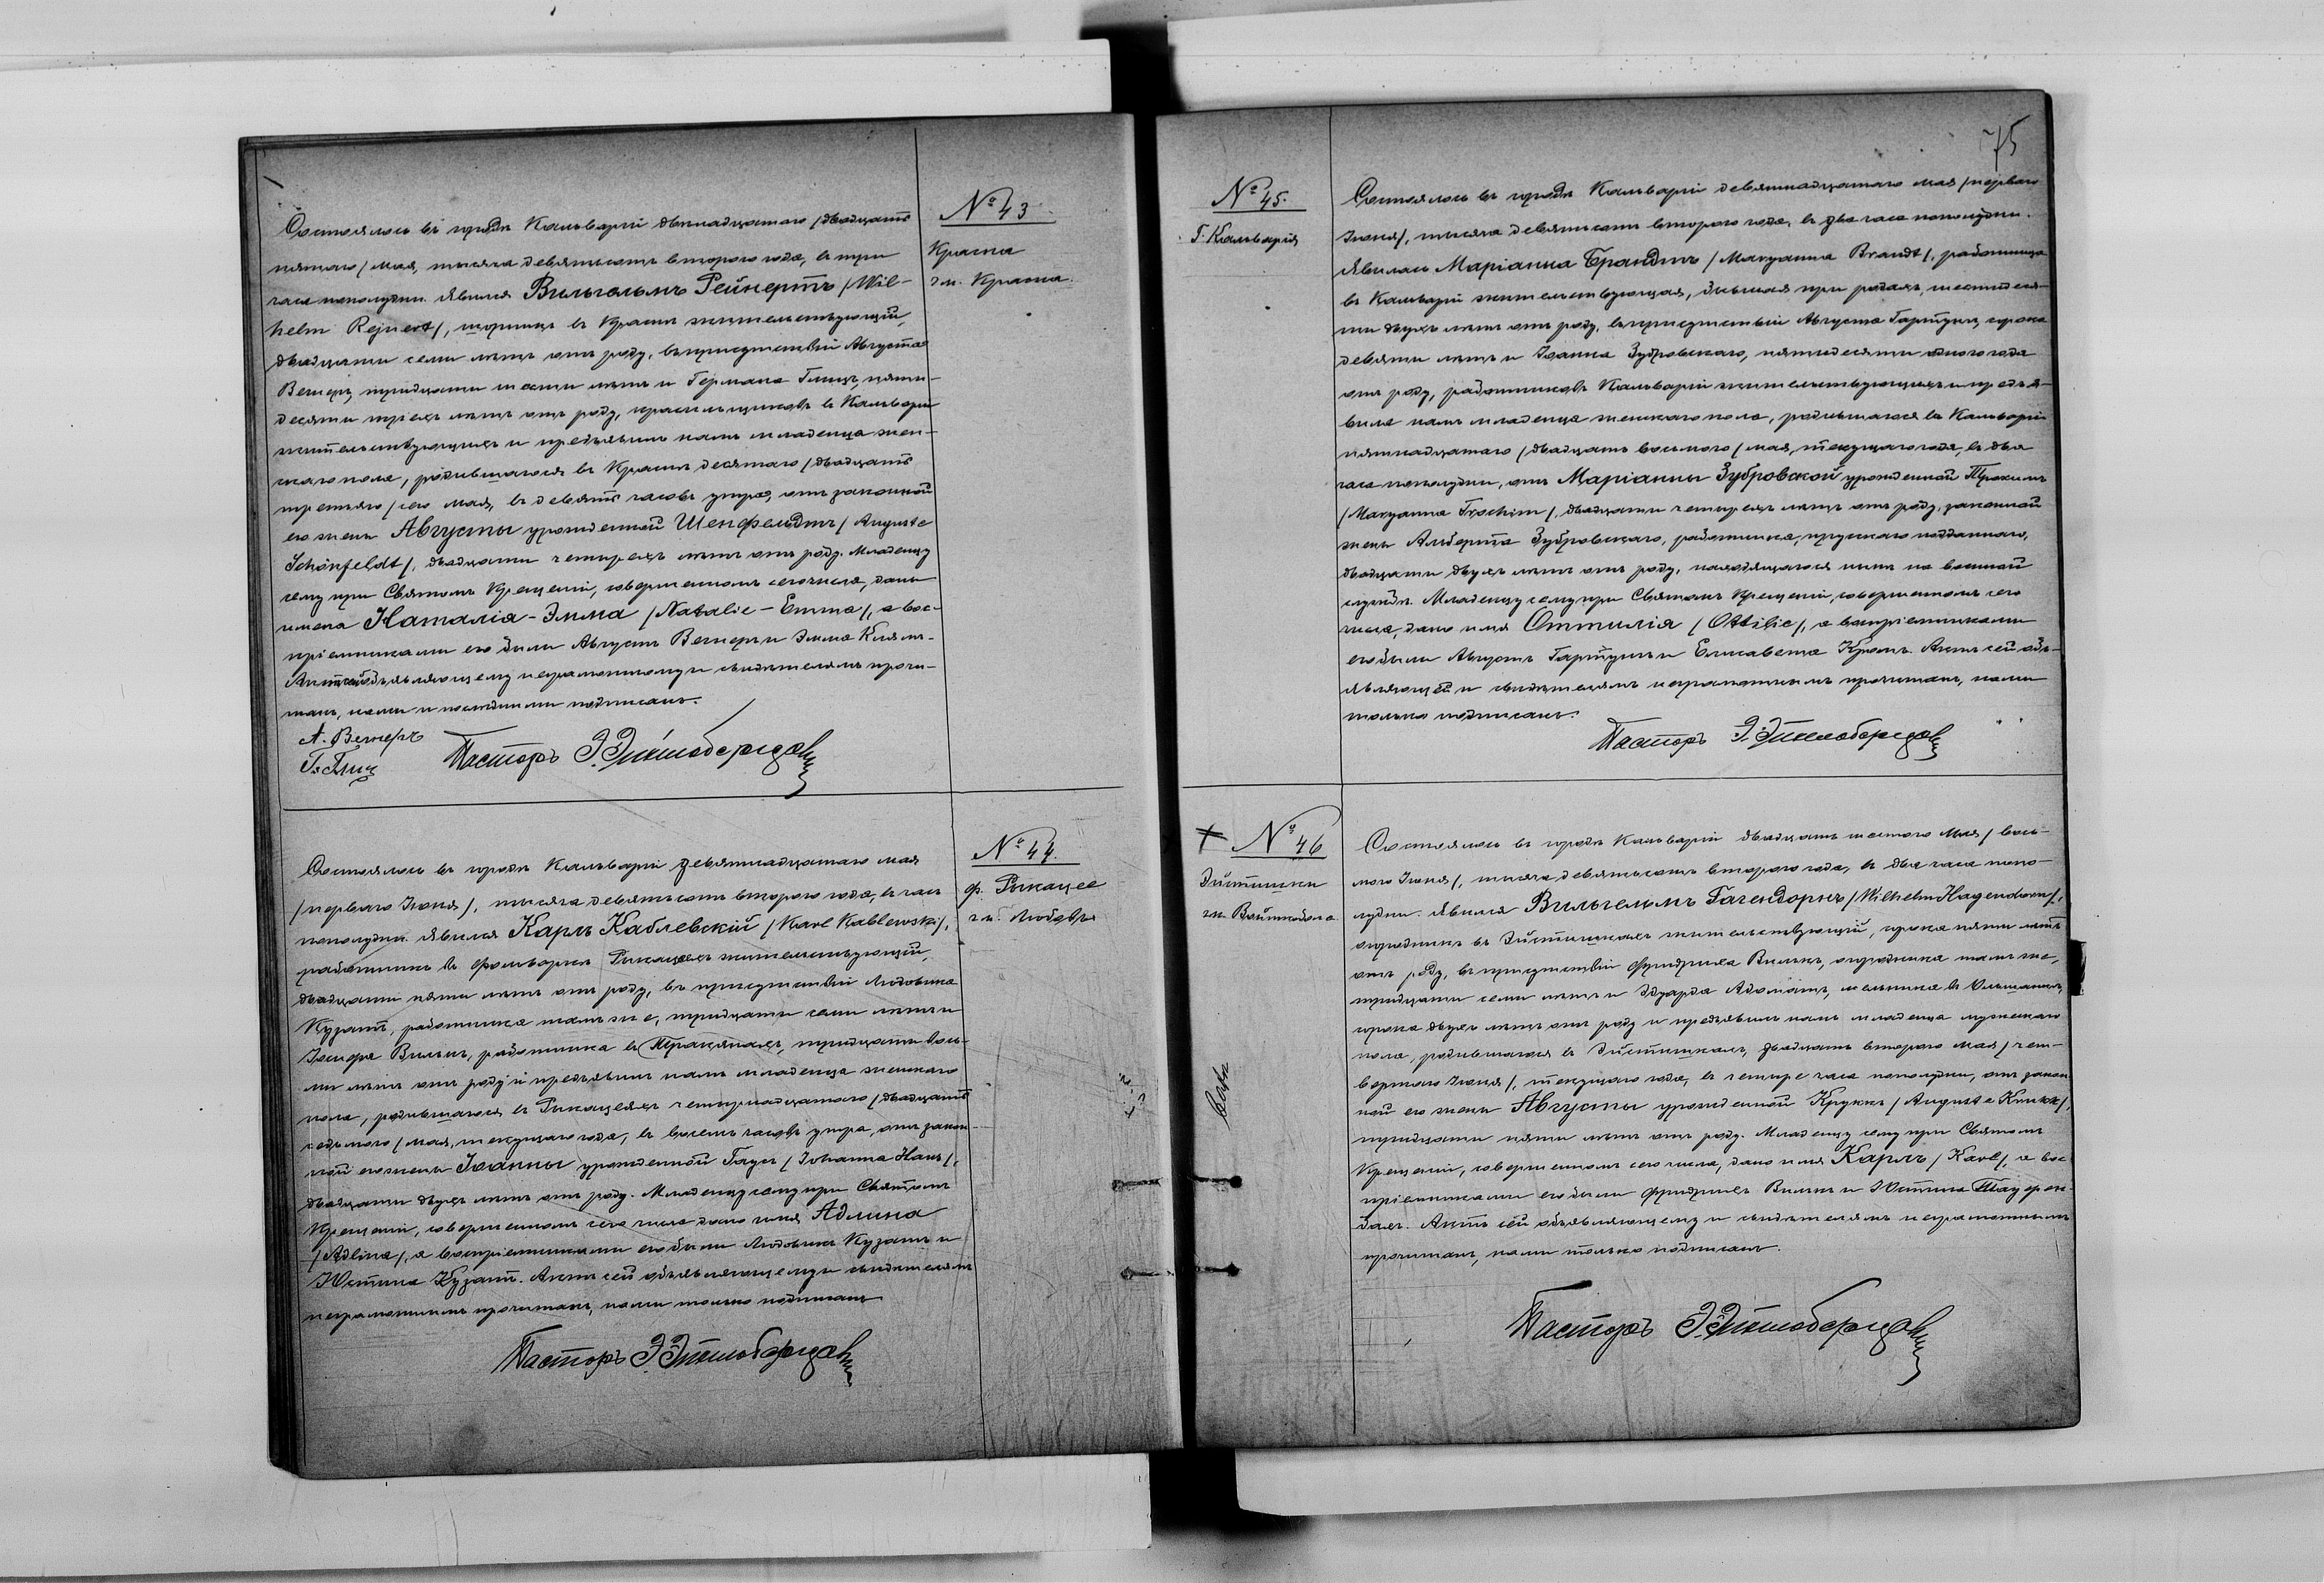 № 43
Красна
гм. Красна.
Состоялось въ городѣ Кальваріи двѣнадцатаго /двадцать
пятаго/ мая, тысяча девятьсотъ второго года, въ три
часа пополудни. Явился Вильгельмъ Рейнертъ /Wil-
helm Rejnert/, въ Краснѣ жительствующій,
двадцати семи лѣтъ отъ роду, въ присутствіи Августа
Вегнеръ, тридцати шести лѣтъ и Германа Глицъ, пяти-
десяти трехъ лѣтъ отъ роду, въ Кальваріи
жительствующихъ и предъявилъ намъ младенца жен-
скаго пола, родившагося въ Краснѣ десятаго /двадцать
третьяго/ сего мая, въ девять часовъ утра, отъ законной
его жены Августы урожденной Шенфельдтъ /Auguste
Schönfeldt/, двадцати четырехъ лѣтъ отъ роду. Младенцу
сему при Святомъ Крещеніи, совершенномъ сего числа, даны
имена Наталія-Эмма /Natalie-Emma/, а вос-
пріемниками его были Августъ Вегнеръ и Эмма
Актъ сей объявляющему неграмотному и свидѣтелямъ прочи-
танъ, нами и послѣдними подписанъ.
А. Вегнеръ
Г. Глиц
Пасторъ Э.
№ 44.
ф. Рикацее
гм. Любовъ
Состоялось въ городѣ Кальваріи девятнадцатаго мая
/перваго Іюня/, тысяча девятьсотъ второго года, въ часъ
пополудни. Явился Карлъ Каблевскій /Karl Kablewski/,
работникъ въ фольваркѣ Рикацеяхъ жительствующій,
двадцати пяти лѣтъ отъ роду, въ присутствіи Людовика
Кузатъ, работника тамъ же, тридцати семи лѣтъ и
Іосифа работника въ Тракянахъ, тридцати вось-
ми лѣтъ отъ роду и предъявилъ намъ младенца женскаго
пола, родившагося въ Рикацеяхъ четырнадцатаго /двадцать
седьмого/ мая, текущаго года, въ восемь часовъ утра, отъ закон-
ной его жены Іоанны урожденной Гаусъ /Johanna Haus/,
двадцати двухъ лѣтъ отъ роду. Младенцу сему при Святомъ
Крещеніи, совершенномъ сего числа дано имя Адлина
/Adlina/, а воспріемниками его были Людовикъ Кузатъ и
Юстина Кузатъ. Актъ сей объявляющему и свидѣтелямъ
неграмотнымъ прочитанъ, нами только подписанъ
Пасторъ Э.
75
№ 45.
Г. Кальварія
Состоялось въ городѣ Кальваріи девятнадцатаго мая /перваго
Іюня/, тысяча девятьсотъ второго года, въ два часа пополудни.
Явилась Маріанна Брандтъ /Maryanna Brandt/, работница
въ Кальваріи жительствующая, бывшая при родахъ, шестидеся-
ти двухъ лѣтъ отъ роду, въ присутствіи Августа сорока
девяти лѣтъ и Іоанна Зубровскаго, пятидесяти одного года
отъ роду, работниковъ Кальваріи жительствующихъ и предъя-
вила намъ младенца женскаго пола, родившагося въ Кальваріи
пятнадцатаго /двадцать восьмого/ мая, текущаго года, въ два
часа пополудни, отъ Маріанны Зубровской урожденной Трохимъ
/Maryanna Trochim/, двадцати четырехъ лѣтъ отъ роду, законной
жены Альберта Зубровскаго, работника, прусскаго подданнаго,
двадцати двухъ лѣтъ отъ роду, находящагося нынѣ на военной
службѣ. Младенцу сему при Святомъ Крещеніи, совершенномъ сего
числа, дано имя Оттилія /Ottilie/, а воспріемниками
его были Августъ и Елисавета Кромъ. Актъ сей объ-
являющей и свидѣтелямъ неграмотнымъ прочитанъ, нами
только подписанъ.
Пасторъ Э.
+ № 46
гм. Войткобола
Состоялось въ городѣ Кальваріи двадцать шестого Мая /вось-
мого Іюня/, тысяча девятьсотъ второго года, въ два часа попо-
лудни. Явился Вильгельмъ Гагендорнъ /Wilhelm Hagendorn/,
огородникъ въ жительствующій, сорока пяти лѣтъ
отъ роду, въ присутствіи Фридриха огородника тамъ же,
тридцати семи лѣтъ и Эдуарда Адоматъ, мельника въ
сорока двухъ лѣтъ отъ роду и предъявилъ намъ младенца мужескаго
пола, родившагося въ двадцать второго Мая /чет-
вертаго Іюня/, текущаго года, въ четыре часа пополудни, отъ закон-
ной его жены Августы урожденной Круккъ /Auguste Krukk/,
тридцати пяти лѣтъ отъ роду. Младенцу сему при Святомъ
Крещеніи, совершенномъ сего числа, дано имя Карлъ /Karl/, а вос-
пріемниками его были Фридрихъ и Юстина
Актъ сей объявляющему и свидѣтелямъ неграмотнымъ
прочитанъ, нами только подписанъ.
Пасторъ Э.